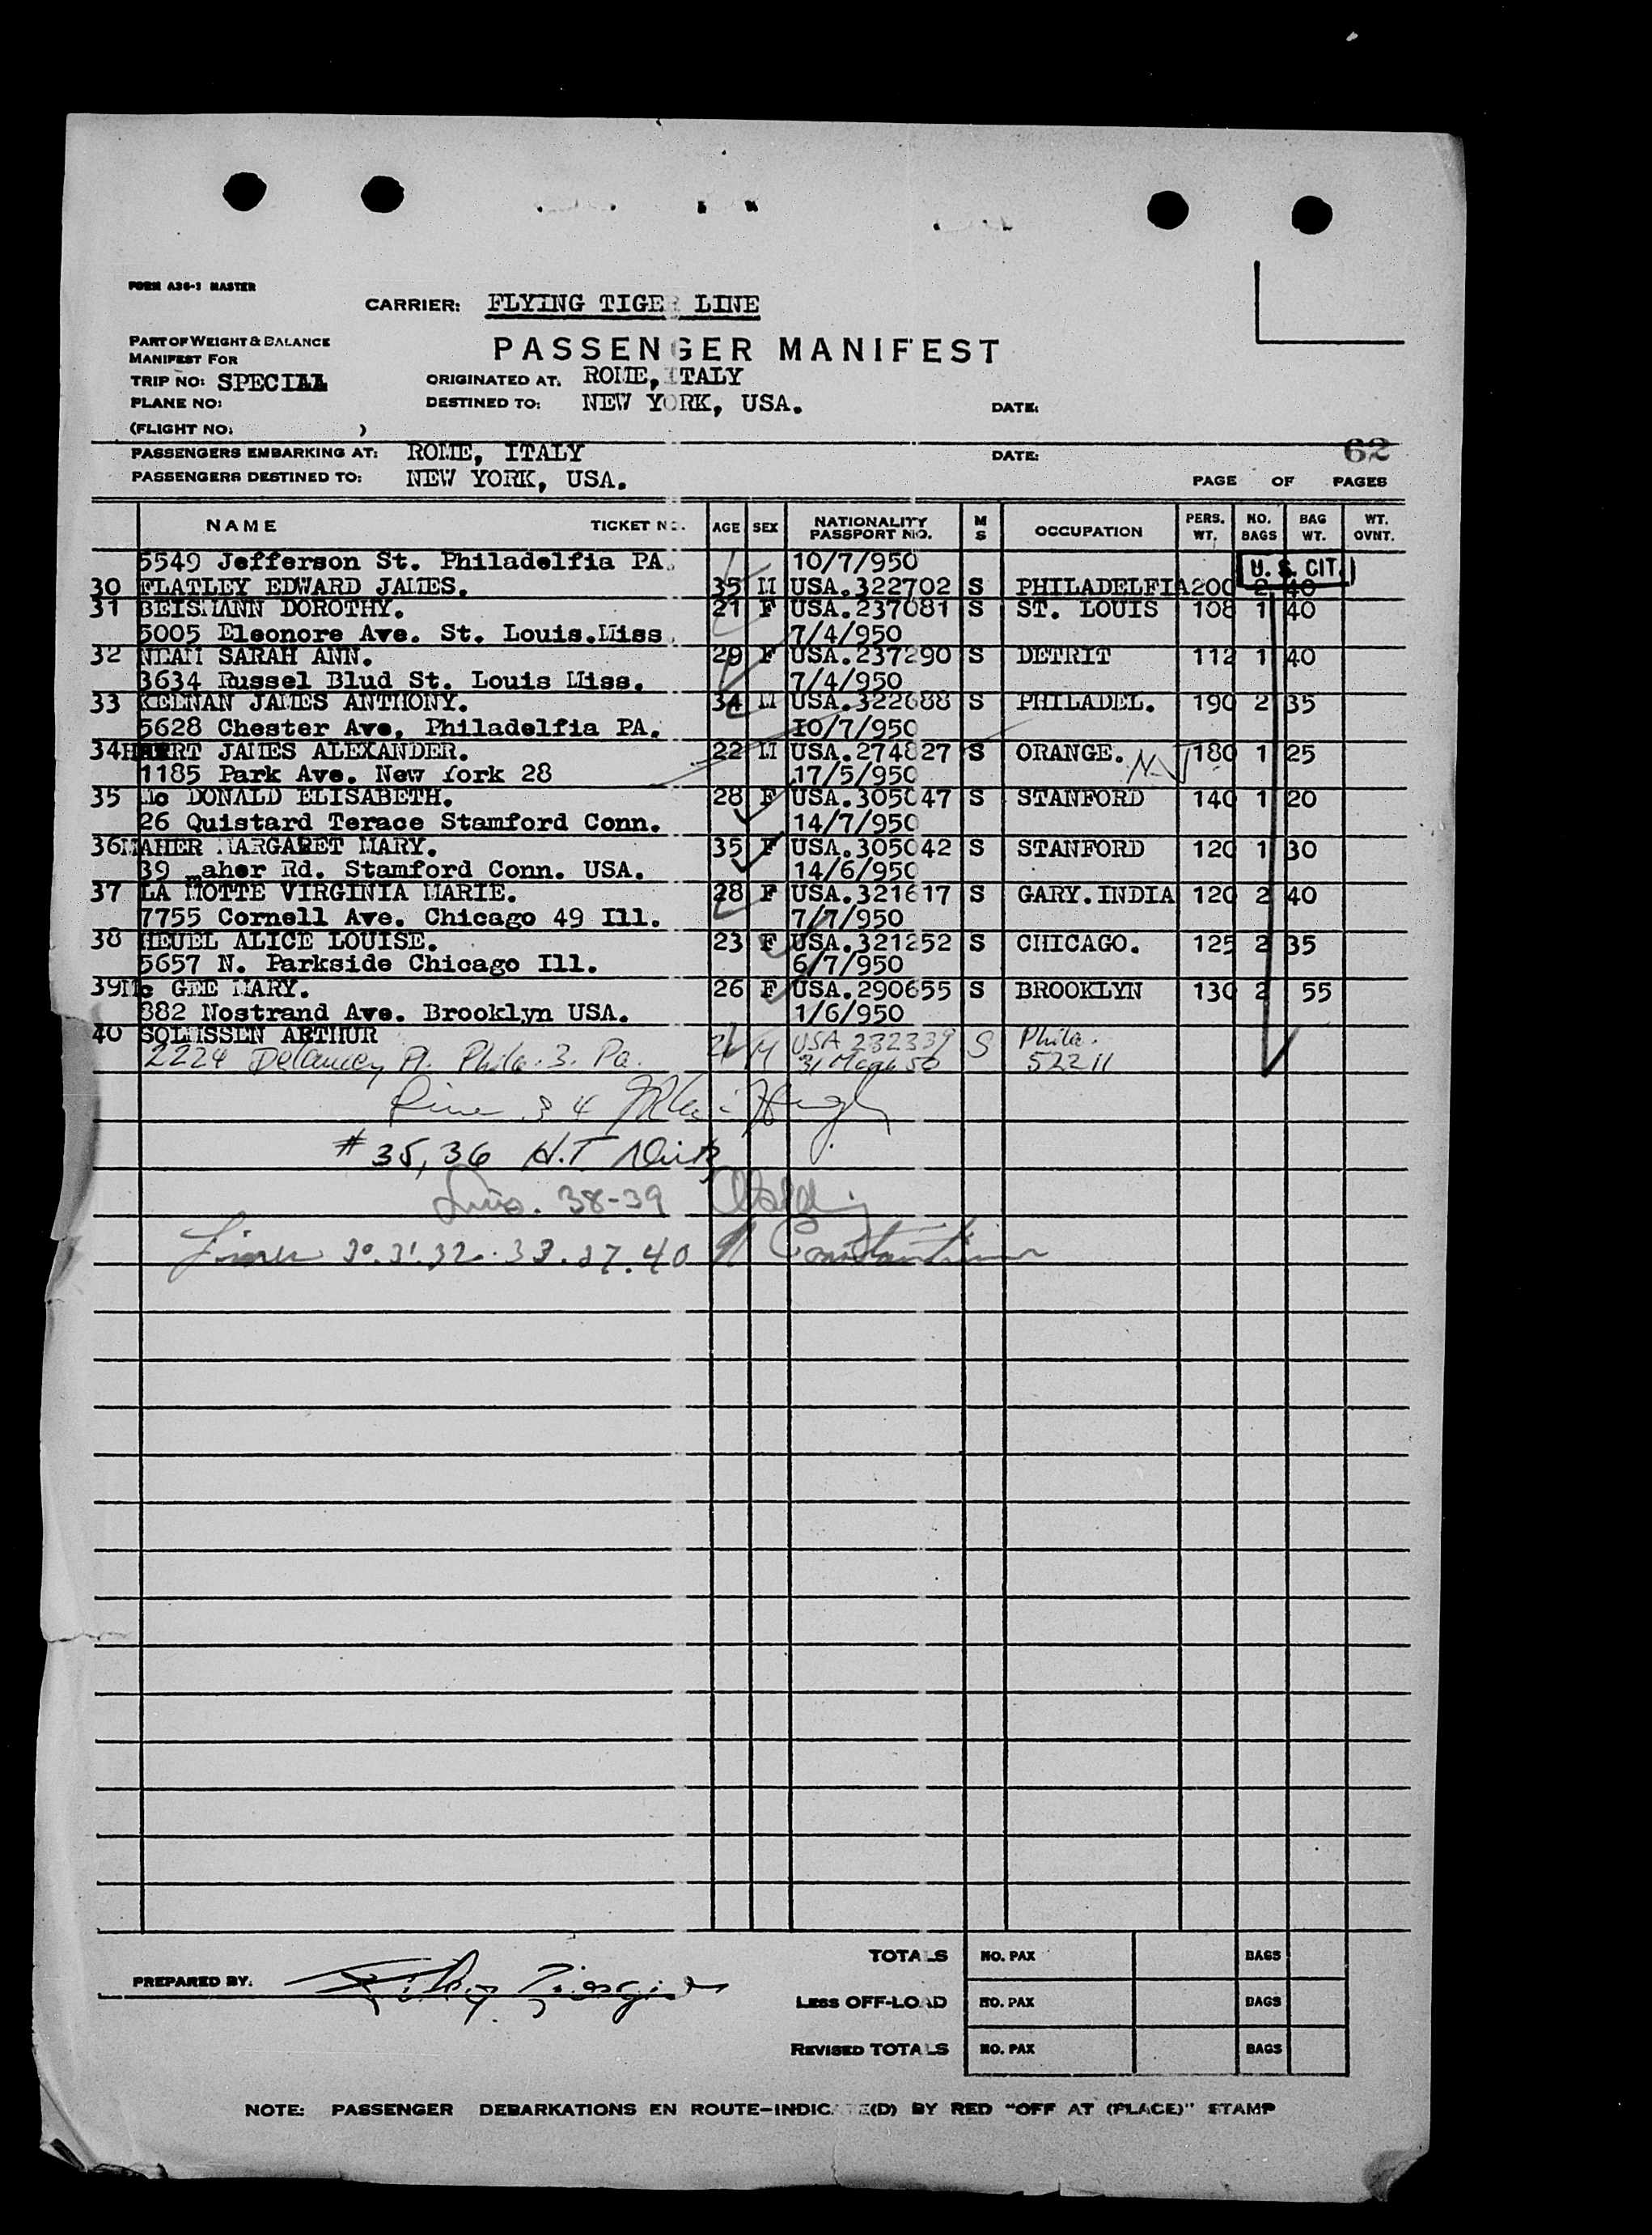 FORM A36-1 MASTER
CARRIER: FLYING TIGER LINE
PART OF WEIGHT & BALANCE
MANIFEST FOR
PASSENGER MANIFEST
TRIP NO: SPECIAL ORIGINATED AT. ROME, ITALY
PLANE NO: DESTINED TO: NEW YORK, USA. DATE:
(FLIGHT NO. )
PASSENGERS EMBARKING AT: ROME, ITALY DATE: 62
PASSENGERS DESTINED TO: NEW YORK, USA. PAGE OF PAGES
NAME TICKET NO. AGE SEX NATIONALITY PASSPORT NO. M S OCCUPATION PERS. WT. NO. BAGS BAG WT. WT. OVNT.
5549 Jefferson St. Philadelfia PA. 10/7/950 U. S. CIT.
30 FLATLEY EDWARD JAMES. 35 M USA.322702 S PHILADELFIA 200 2 40
31 BEISMANN DOROTHY. 21 F USA.237081 S ST. LOUIS 108 1 40
5005 Eleonore Ave. St. Louis.Miss. 7/4/950
32 NEAM SARAH ANN. 29 F USA.237290 S DETRIT 112 1 40
3634 Russel Blud St. Louis Miss. 7/4/950
33 KEENAN JAMES ANTHONY. 34 M USA.322688 S PHILADEL. 190 2 35
5628 Chester Ave, Philadelfia PA. 10/7/950
34 JAMES ALEXANDER. 22 M USA.274827 S ORANGE. N-J 180 1 25
1185 Park Ave. New York 28 17/5/950
35 Mc DONALD ELISABETH. 28 F USA.305047 S STANFORD 140 1 20
26 Quistard Terace Stamford Conn. 14/7/950
36 MAHER MARGARET MARY. 35 F USA.305042 S STANFORD 120 1 30
39 maher Rd. Stamford Conn. USA. 14/6/950
37 LA MOTTE VIRGINIA MARIE. 28 F USA.321617 S GARY.INDIA 120 2 40
7755 Cornell Ave. Chicago 49 Ill. 7/7/950
38 HEUEL ALICE LOUISE. 23 F USA.321252 S CHICAGO. 125 2 35
5657 N. Parkside Chicago Ill. 6/7/950
39 Mc GEE MARY. 26 F USA.290655 S BROOKLYN 130 2 55
882 Nostrand Ave. Brooklyn USA. 1/6/950
40 SOLMSSEN ARTHUR M USA 232339 S Phila.
2224 Delancey Pl. Phila. 3. Pa. 52211
34
#35,36 H.T
38-39
Lines 30.31.32.33.37.40 Constantine
TOTALS NO. PAX BAGS
PREPARED BY.
LESS OFF-LOAD NO. PAX BAGS
REVISED TOTALS NO. PAX BAGS
NOTE: PASSENGER DEBARKATIONS EN ROUTE-INDICATE(D) BY RED "OFF AT (PLACE)" STAMP